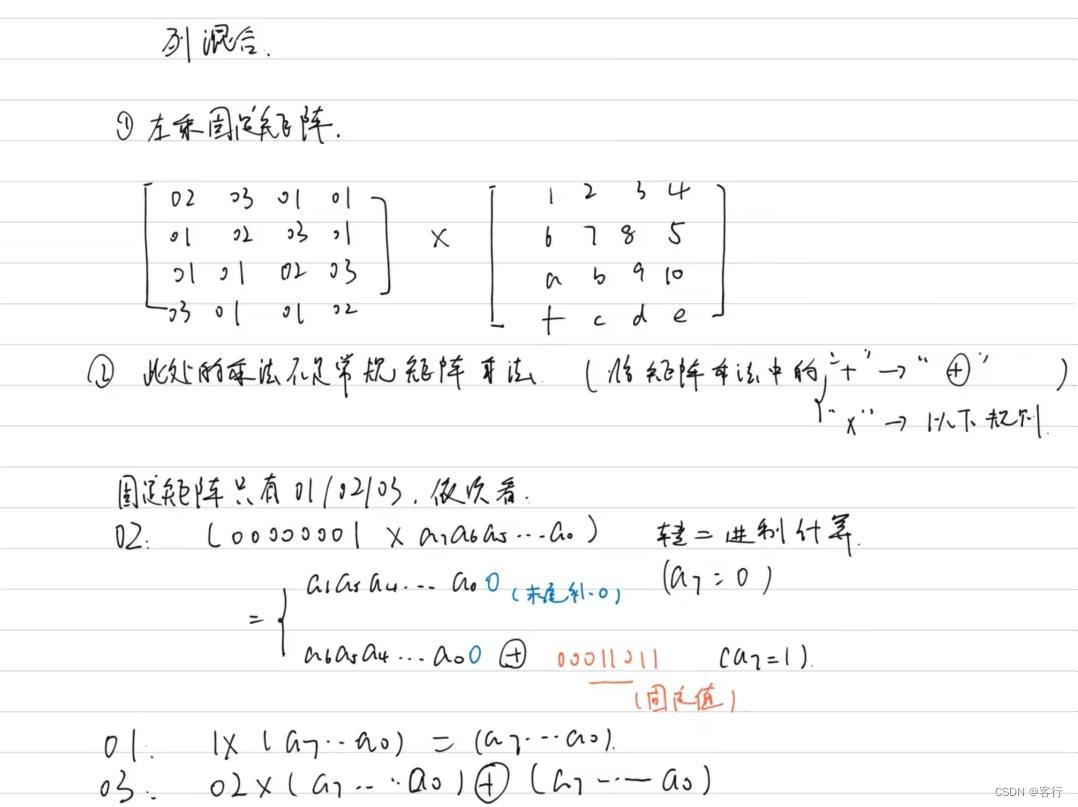 列混合.
① 左乘固定矩阵.
02 03 01 01 × 1 2 3 4
01 02 03 01 6 7 8 5
01 01 02 03 a b 9 10
03 01 01 02 f c d e
② 此处的乘法不是常规矩阵乘法. (将矩阵乘法中的 "+" → "⊕" )
"×" → 以下规则.
固定矩阵只有 01/02/03, 依次看.
02: (00000001 × a₇a₆a₅…a₀) 转二进制计算.
= { a₆a₅a₄…a₀0 (末尾补0) (a₇=0)
a₆a₅a₄…a₀0 ⊕ 00011011 (a₇=1).
(固定值)
01: 1×(a₇…a₀) = (a₇…a₀).
03: 02×(a₇…a₀) ⊕ (a₇…a₀)
CSDN @客行